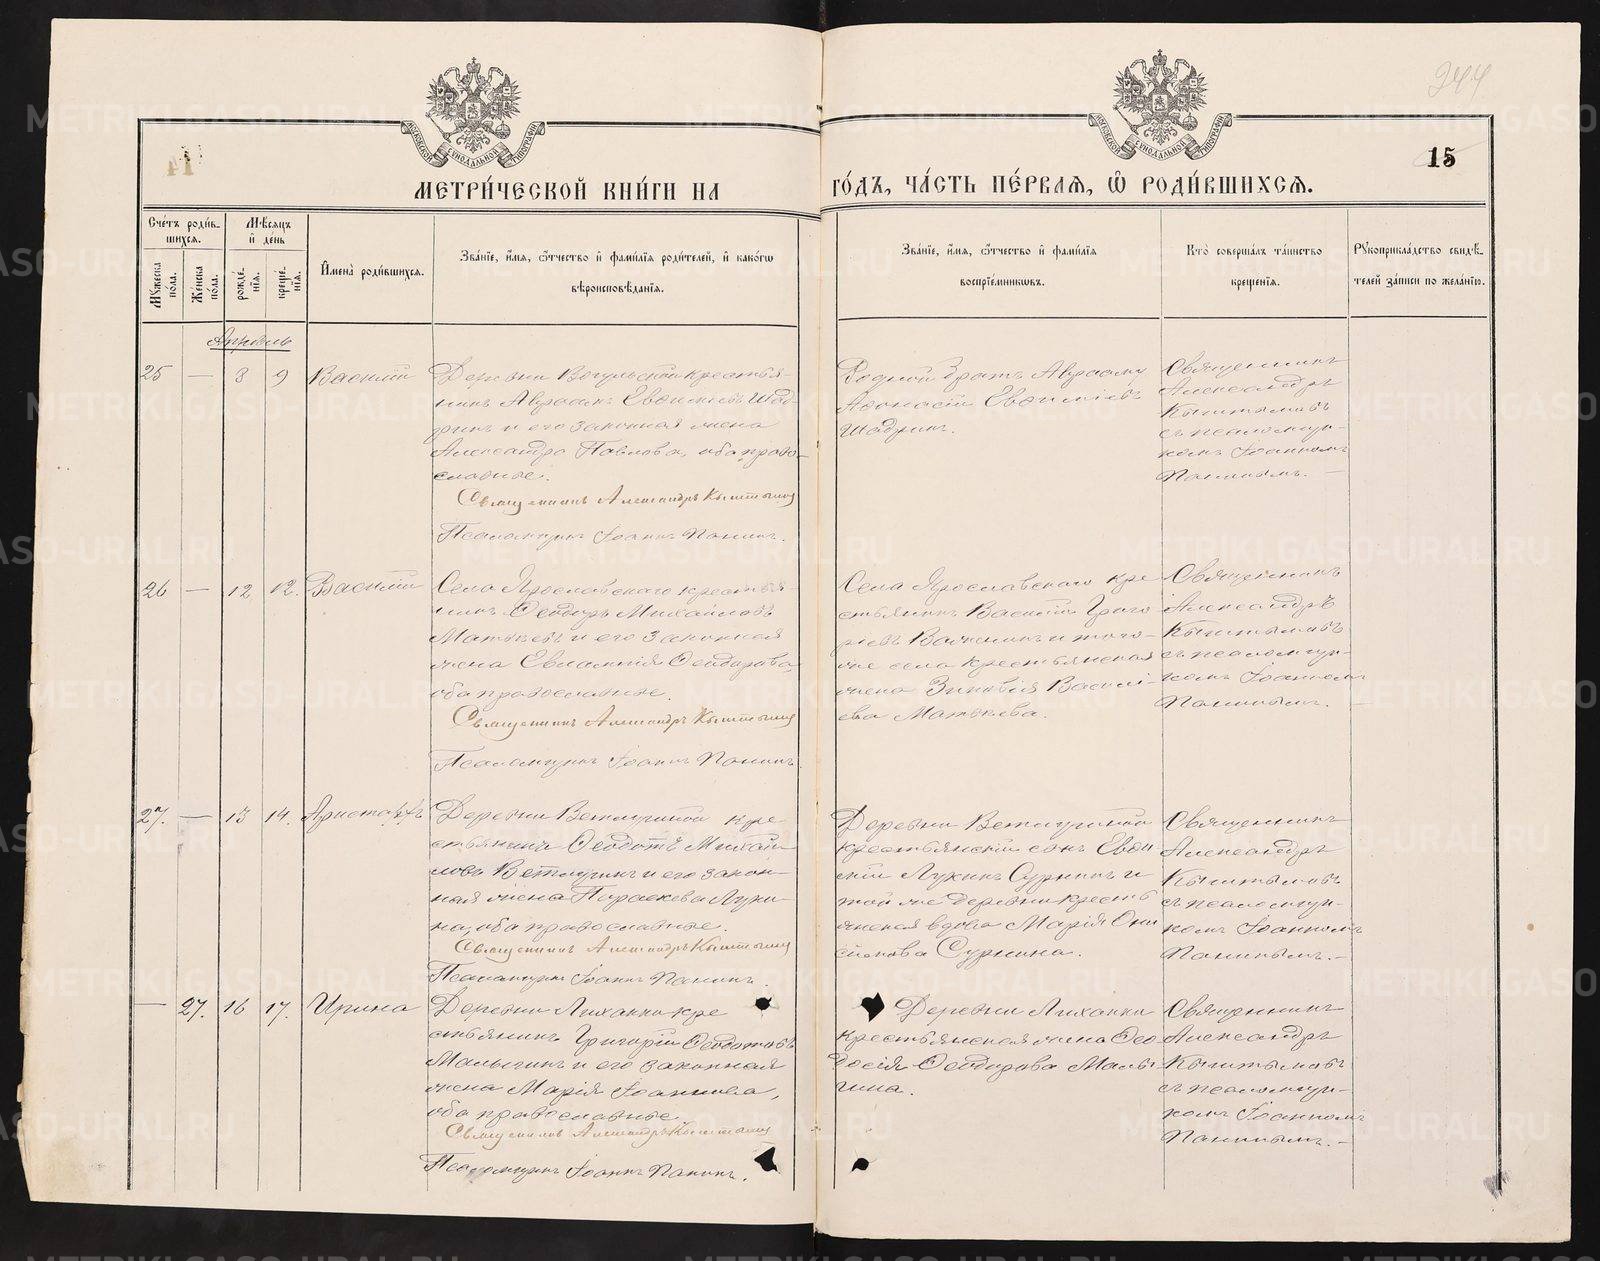 244
15
МЕТРИ́ЧЕСКОЙ КНИ́ГИ НА
ГО́ДЪ, ЧА́СТЬ ПЕ́РВАѦ, Ѡ РОДИ́ВШИХСѦ.
Сче́тъ роди́в-
шихсѧ.
Мѣ́сѧцъ
и҆ де́нь
Мꙋ́жеска
по́ла.
Же́нска
по́ла.
рожде́-
нїѧ.
креще́-
нїѧ.
И҆мена̀ роди́вшихсѧ.
Зва́нїе, и҆́мѧ, ѻ҆́тчество и҆ фами́лїѧ роди́телей, и҆ како́гѡ
вѣроисповѣ́данїѧ.
Зва́нїе, и҆́мѧ, ѻ҆́тчество и҆ фами́лїѧ
воспрїе́мникѡвъ.
Кто̀ соверша́лъ та́инство
креще́нїѧ.
Рꙋкоприкла́дство свидѣ́-
телей за́писи по жела́нїю.
Апрѣль
25 — 8 9 Василій
Деревни Вогульской крестья-
нинъ Авраамъ Евѳиміевъ Шад-
ринъ и его законная жена
Александра Павлова, оба право-
славные.
Священникъ Александръ Кыштымовъ
Псаломщикъ Іоаннъ Панинъ.
Родной братъ Авраама
Аѳонасій Евѳиміевъ
Шадринъ.
Священникъ
Александръ
Кыштымовъ
съ псаломщи-
комъ Іоанномъ
Панинымъ. —
26 — 12 12. Василій
Села Ярославскаго крестья-
нинъ Ѳеодоръ Михайловъ
Матѳѣевъ и его законная
жена Евлампія Ѳеодорова,
оба православные.
Священникъ Александръ Кыштымовъ
Псаломщикъ Іоаннъ Панинъ.
Села Ярославскаго кре-
стьянинъ Василій Григо-
рьевъ и того-
же села крестьянская
жена Зиновія Василі-
ева Матѳѣева.
Священникъ
Александръ
Кыштымовъ
съ псаломщи-
комъ Іоанномъ
Панинымъ.
27. — 13 14. Аристархъ
Деревни Ветлугиной кре-
стьянинъ Ѳеодотъ Михай-
ловъ Ветлугинъ и его закон-
ная жена Параскева Луки-
на, оба православные.
Священникъ Александръ Кыштымовъ
Псаломщикъ Іоаннъ Панинъ.
Деревни Ветлугиной
крестьянскій сынъ Евѳи-
мій Лукинъ Суринъ и
той же деревни крестья-
янская вдова Марія Они-
симова Сурнина.
Священникъ
Александръ
Кыштымовъ
съ псаломщи-
комъ Іоанномъ
Панинымъ. —
— 27. 16 17. Ирина
Деревни Лиханки кре-
стьянинъ Григорій Ѳеодотовъ
Малыгинъ и его законная
жена Марія Іоаннова,
оба православные.
Священникъ Александръ Кыштымовъ
Псаломщикъ Іоаннъ Панинъ.
Деревни Лиханки
крестьянская жена Ѳео-
досія Ѳеодорова Малы-
гина.
Священникъ
Александръ
Кыштымовъ
съ псаломщи-
комъ Іоанномъ
Панинымъ. —